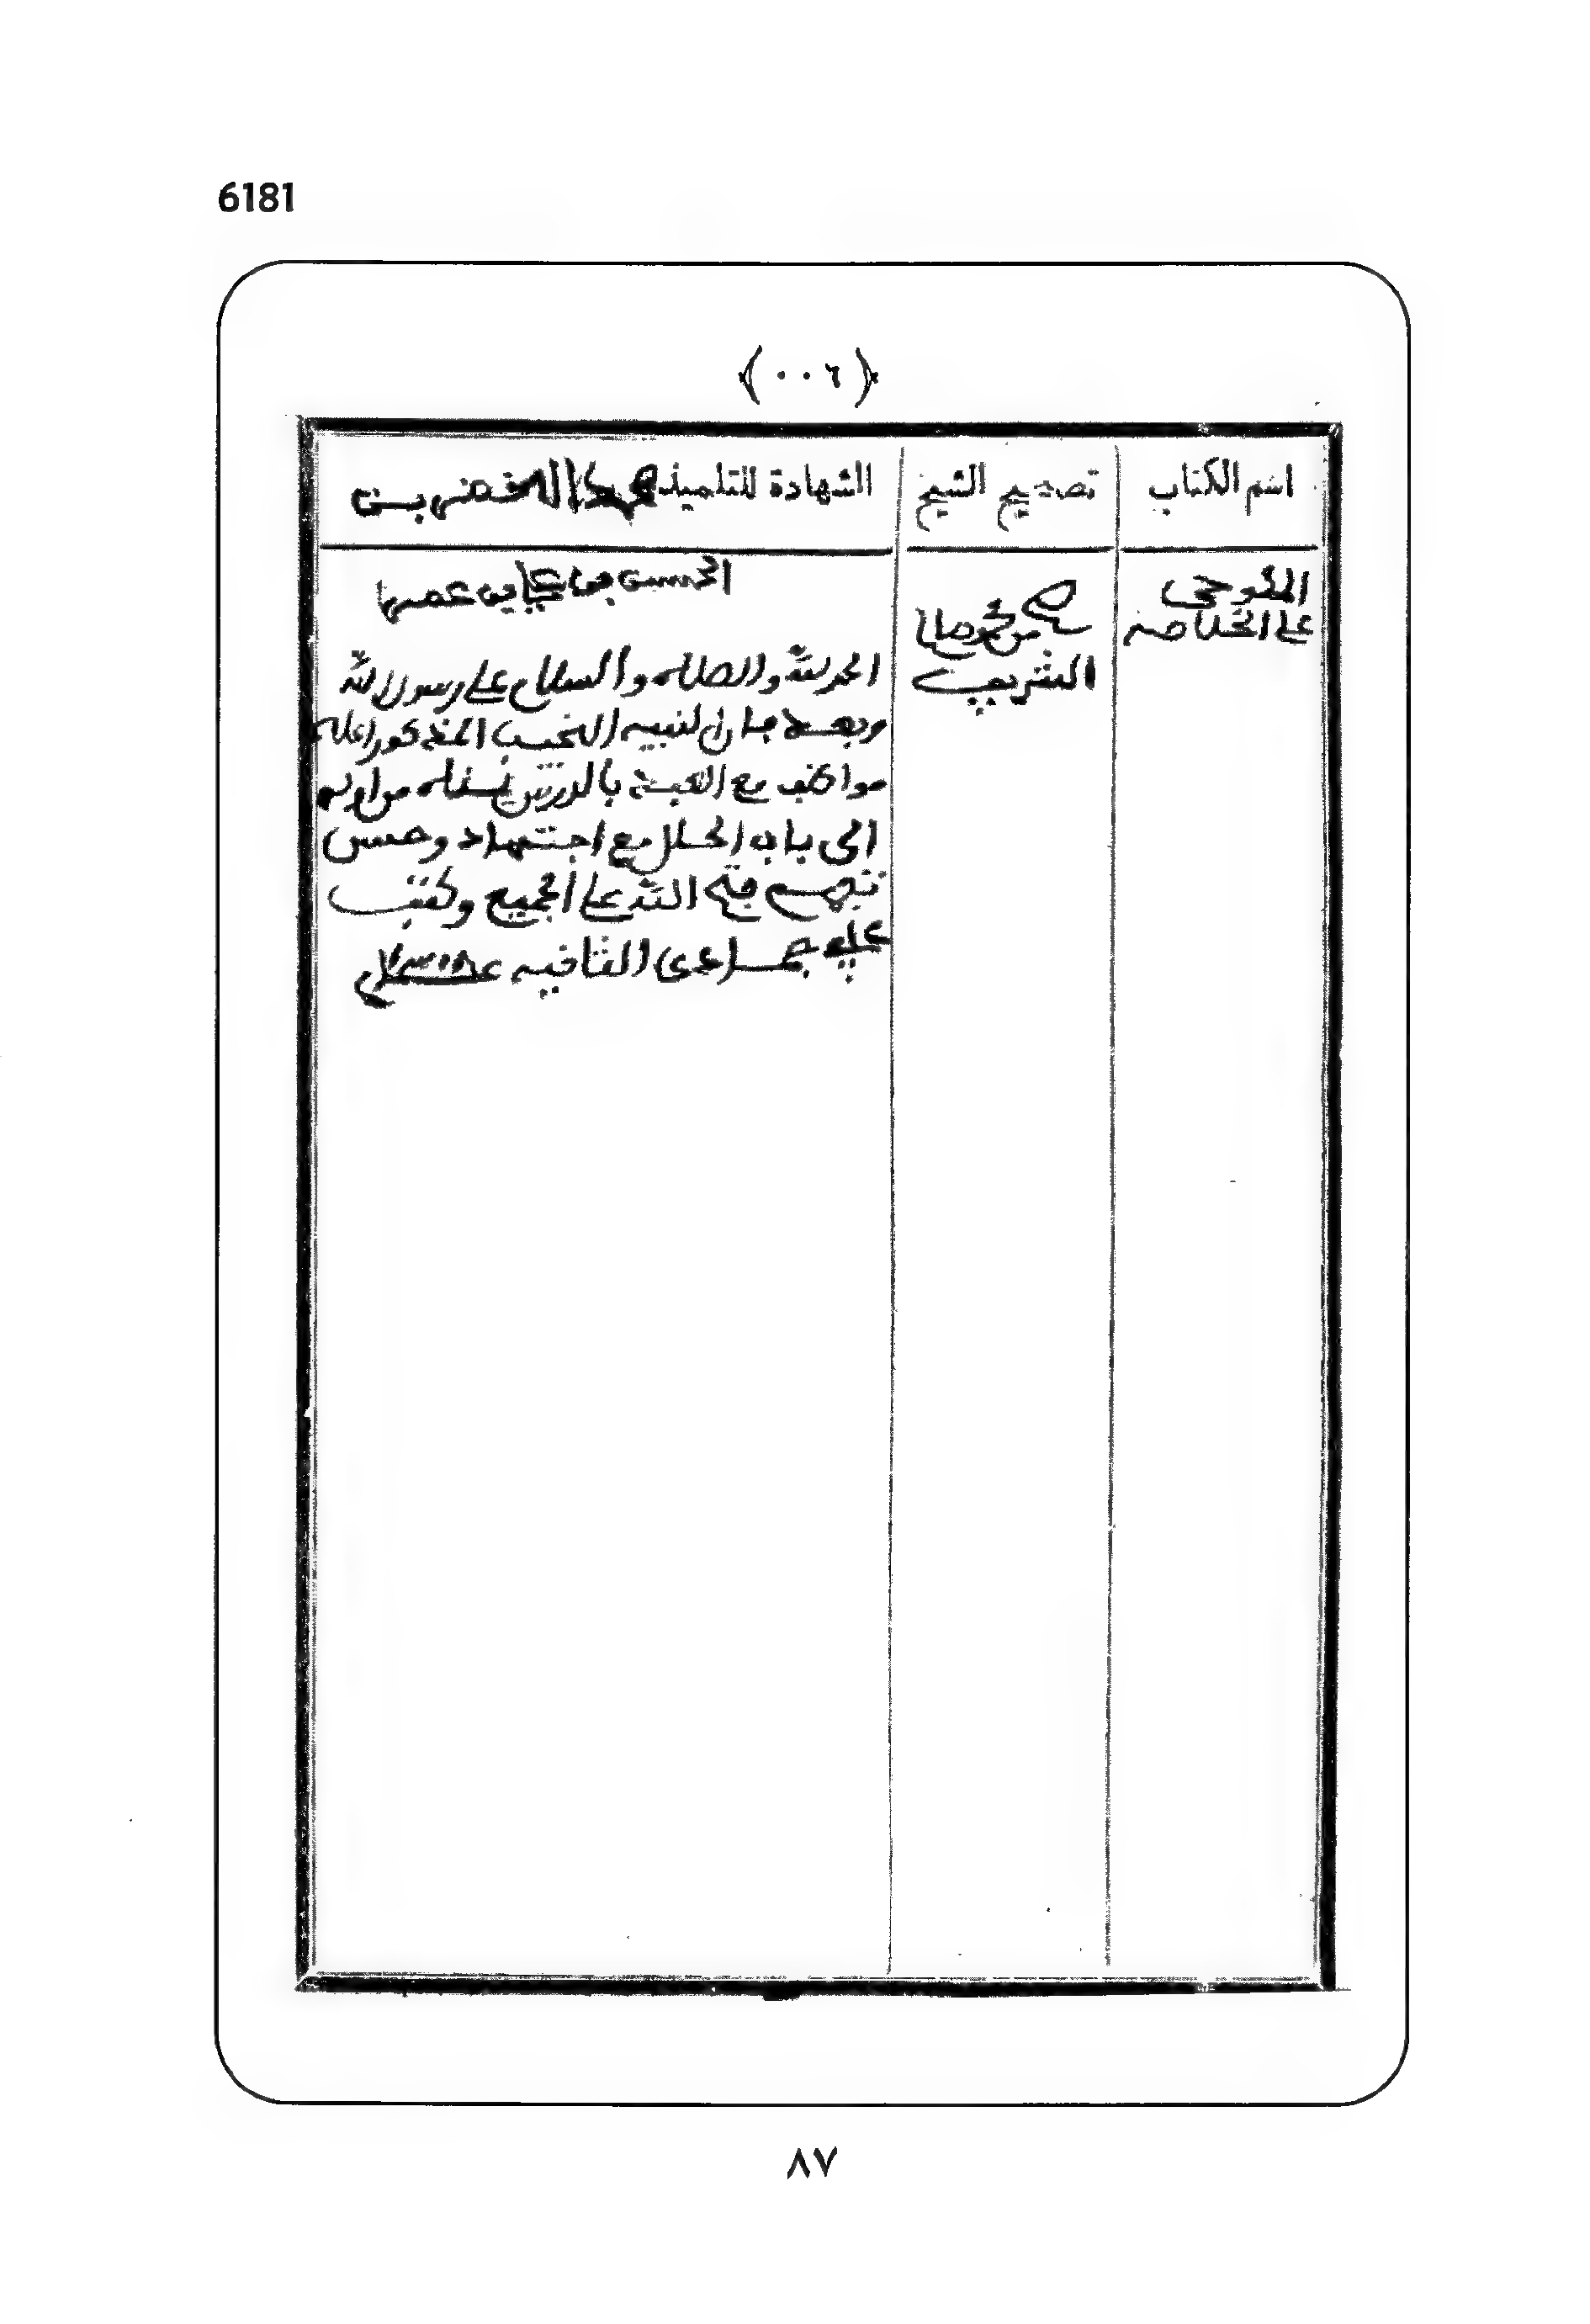 6181
﴿٠٠٦﴾
اسم الكتاب
تصحيح الشيخ
الشهادة للتلميذ محمد الخضر بن
المكودي
على الخلاصة
صح من محمد صالح
الشريف
الحسين بن علي بن عمر
الحمد لله والصلاة والسلام على رسول الله
وبعد فإن لنبيه النجيب المذكور أعلاه
مواظب مع الغبة بالدرس بسناه من أوله
الى باب الحال مع اجتهاد وحسن
تفهم فتح الله على الجميع وكتب
عليه جمادى الثانية عام
٨٧